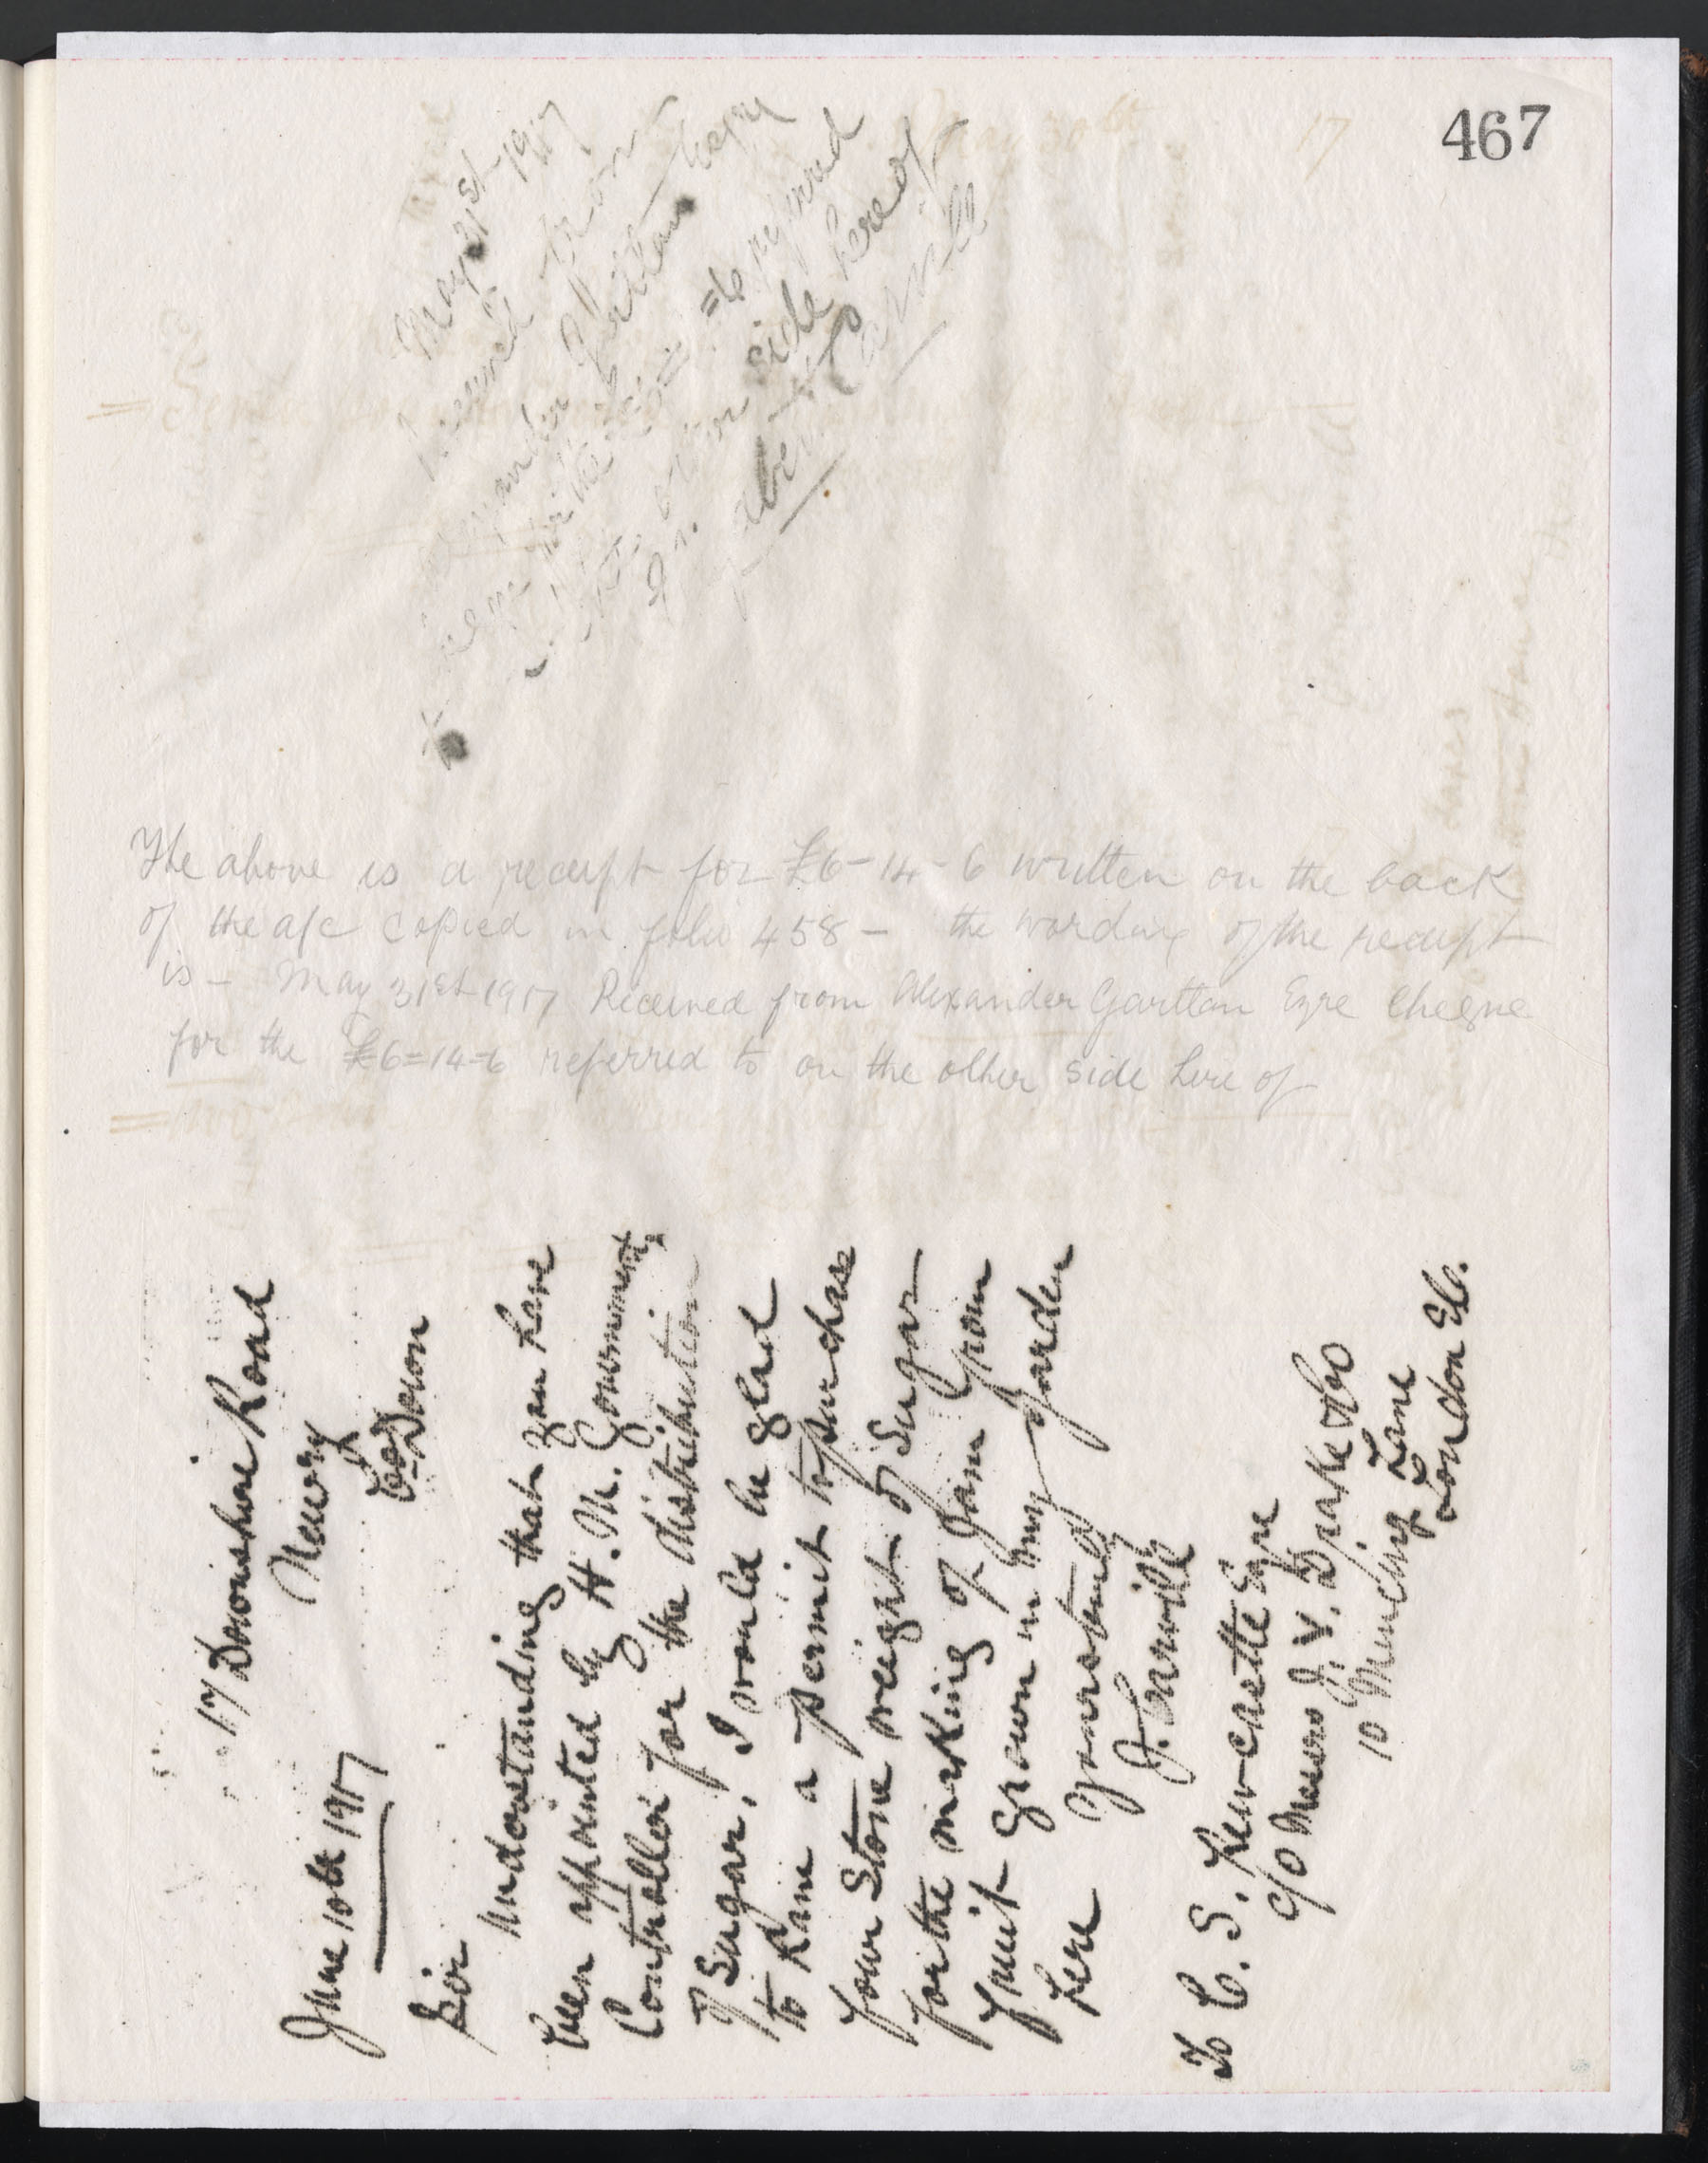 467
May 31st 1917
Received from
Alexander Gartlan Esqre
Cheque for the £6=14=6 referred
to on other side hereof
J. Carvill
The above is a receipt for £6-14-6 written on the back
of the a/c copied in folio 458 - the wording of the receipt
is - May 31st 1917 Received from Alexander Gartlan Esqre Cheque
for the £6=14=6 referred to on the other side here of
17 Downshire Road
Newry
Co Down
June 10th 1917
Sir
Understanding that you have
been appointed by H. M. Government
Controller for the distribution
of Sugar, I would be glad
to have a permit to purchase
four Stone weight of Sugar
for the making of Jam from
fruit grown in my garden
here yours truly
J. Carvill
To C. S. Newcastle Esqre
c/o Messrs J. V. Drake & Co
10 Mincing Lane
London Ec.